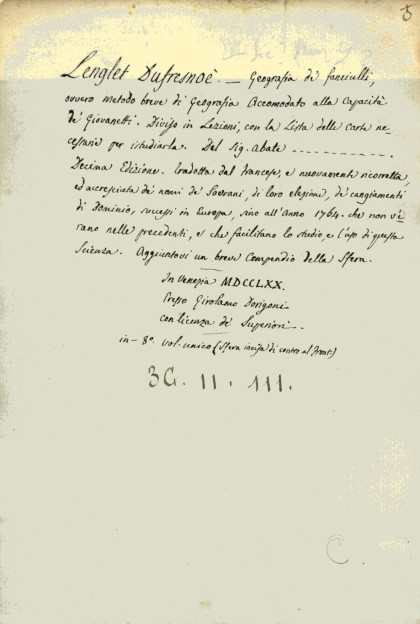 Lenglet Dufresnoè. — Geografia de' fanciulli,
ovvero metodo breve di Geografia Accomodato alla Capacità
de' Giovanetti. Diviso in Lezioni, con la Lista delle Carte ne-
cessarie per istudiarla. Del Sig. Abate - - - - - - - - - - - -
Decima Edizione. Tradotta dal francese, e nuovamente ricorretta,
ed accresciuta de' nomi de' Sovrani, di loro elezione, de' cangiamenti
di Dominio, successi in Europa, sino all'Anno 1764. che non v'e-
rano nelle precedenti, e che facilitano lo studio, e l'uso di questa
Scienza. Aggiuntovi un breve Compendio della Sfera.
In Venezia MDCCLXX.
Presso Girolamo Dorigoni
con licenza de' Superiori.
in-8°. vol. unico (Sfera incisa di contro al front.)
3G. 11. 111.
C